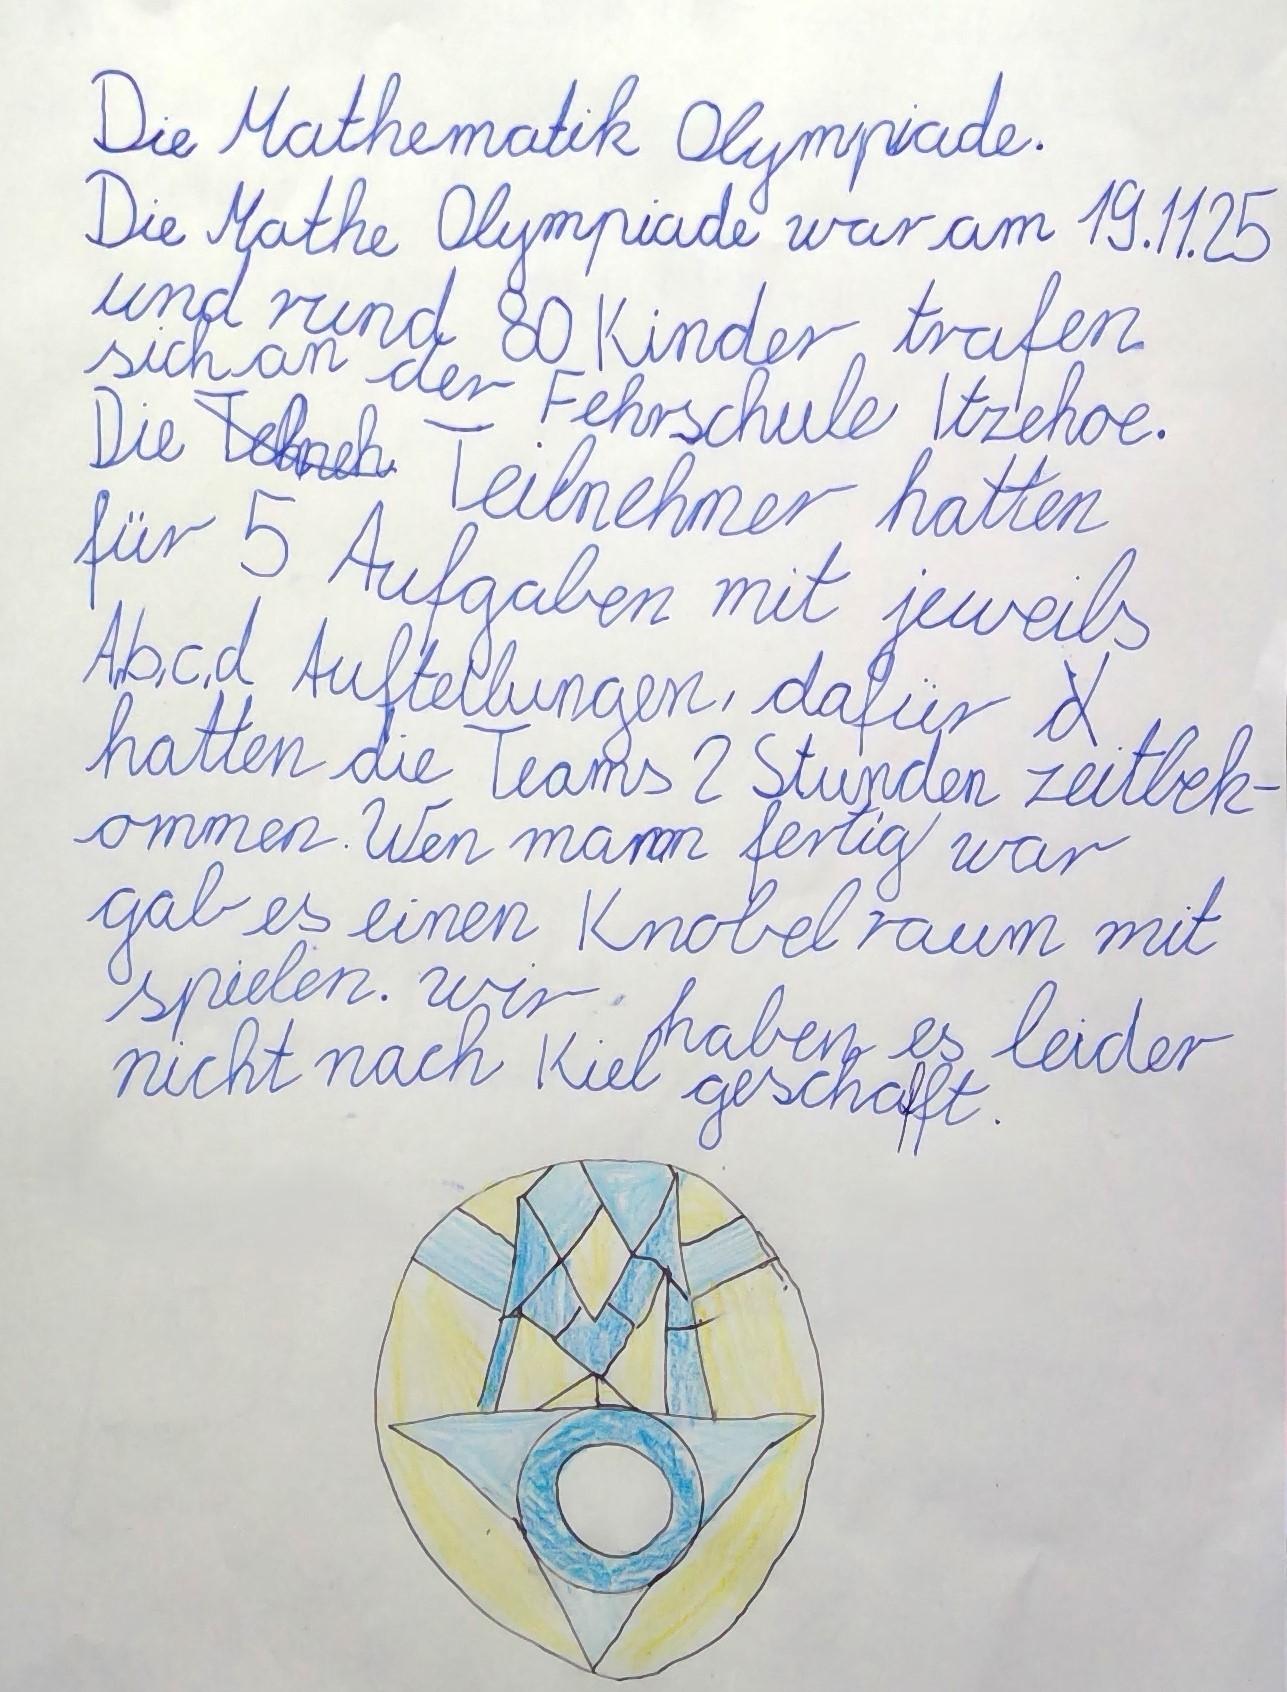 Die Mathematik Olympiade.
Die Mathe Olympiade war am 19.11.25
und rund 80 Kinder trafen
sich an der Fehrschule Itzehoe.
Die Teilnehmer hatten
für 5 Aufgaben mit jeweils
A,b,c,d Aufteilungen, dafür
hatten die Teams 2 Stunden zeitbek-
ommen. Wen mann fertig war
gab es einen Knobelraum mit
spielen. wir haben es leider
nicht nach Kiel geschafft.